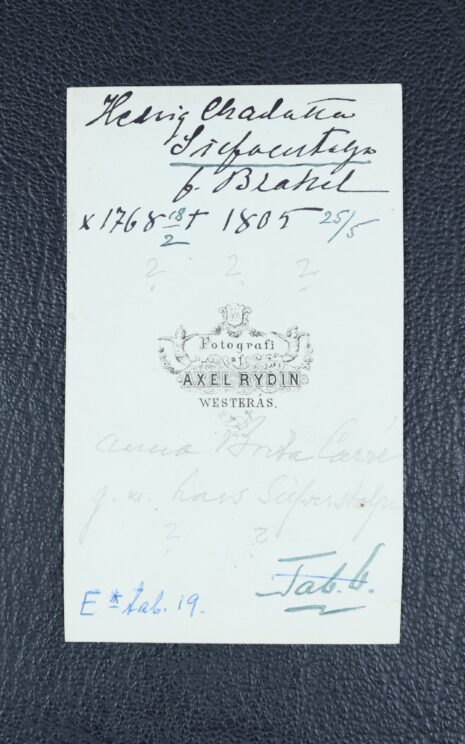 Hedvig Charlotta
Silfverstolpe
f. Brakel
x 1768 18/2 † 1805 25/5
? ? ?
Fotografi
af
AXEL RYDIN
WESTERÅS.
anna Brita Carré
g. m. Silfverstolpe
? ?
Tab. 6.
E * tab. 19.